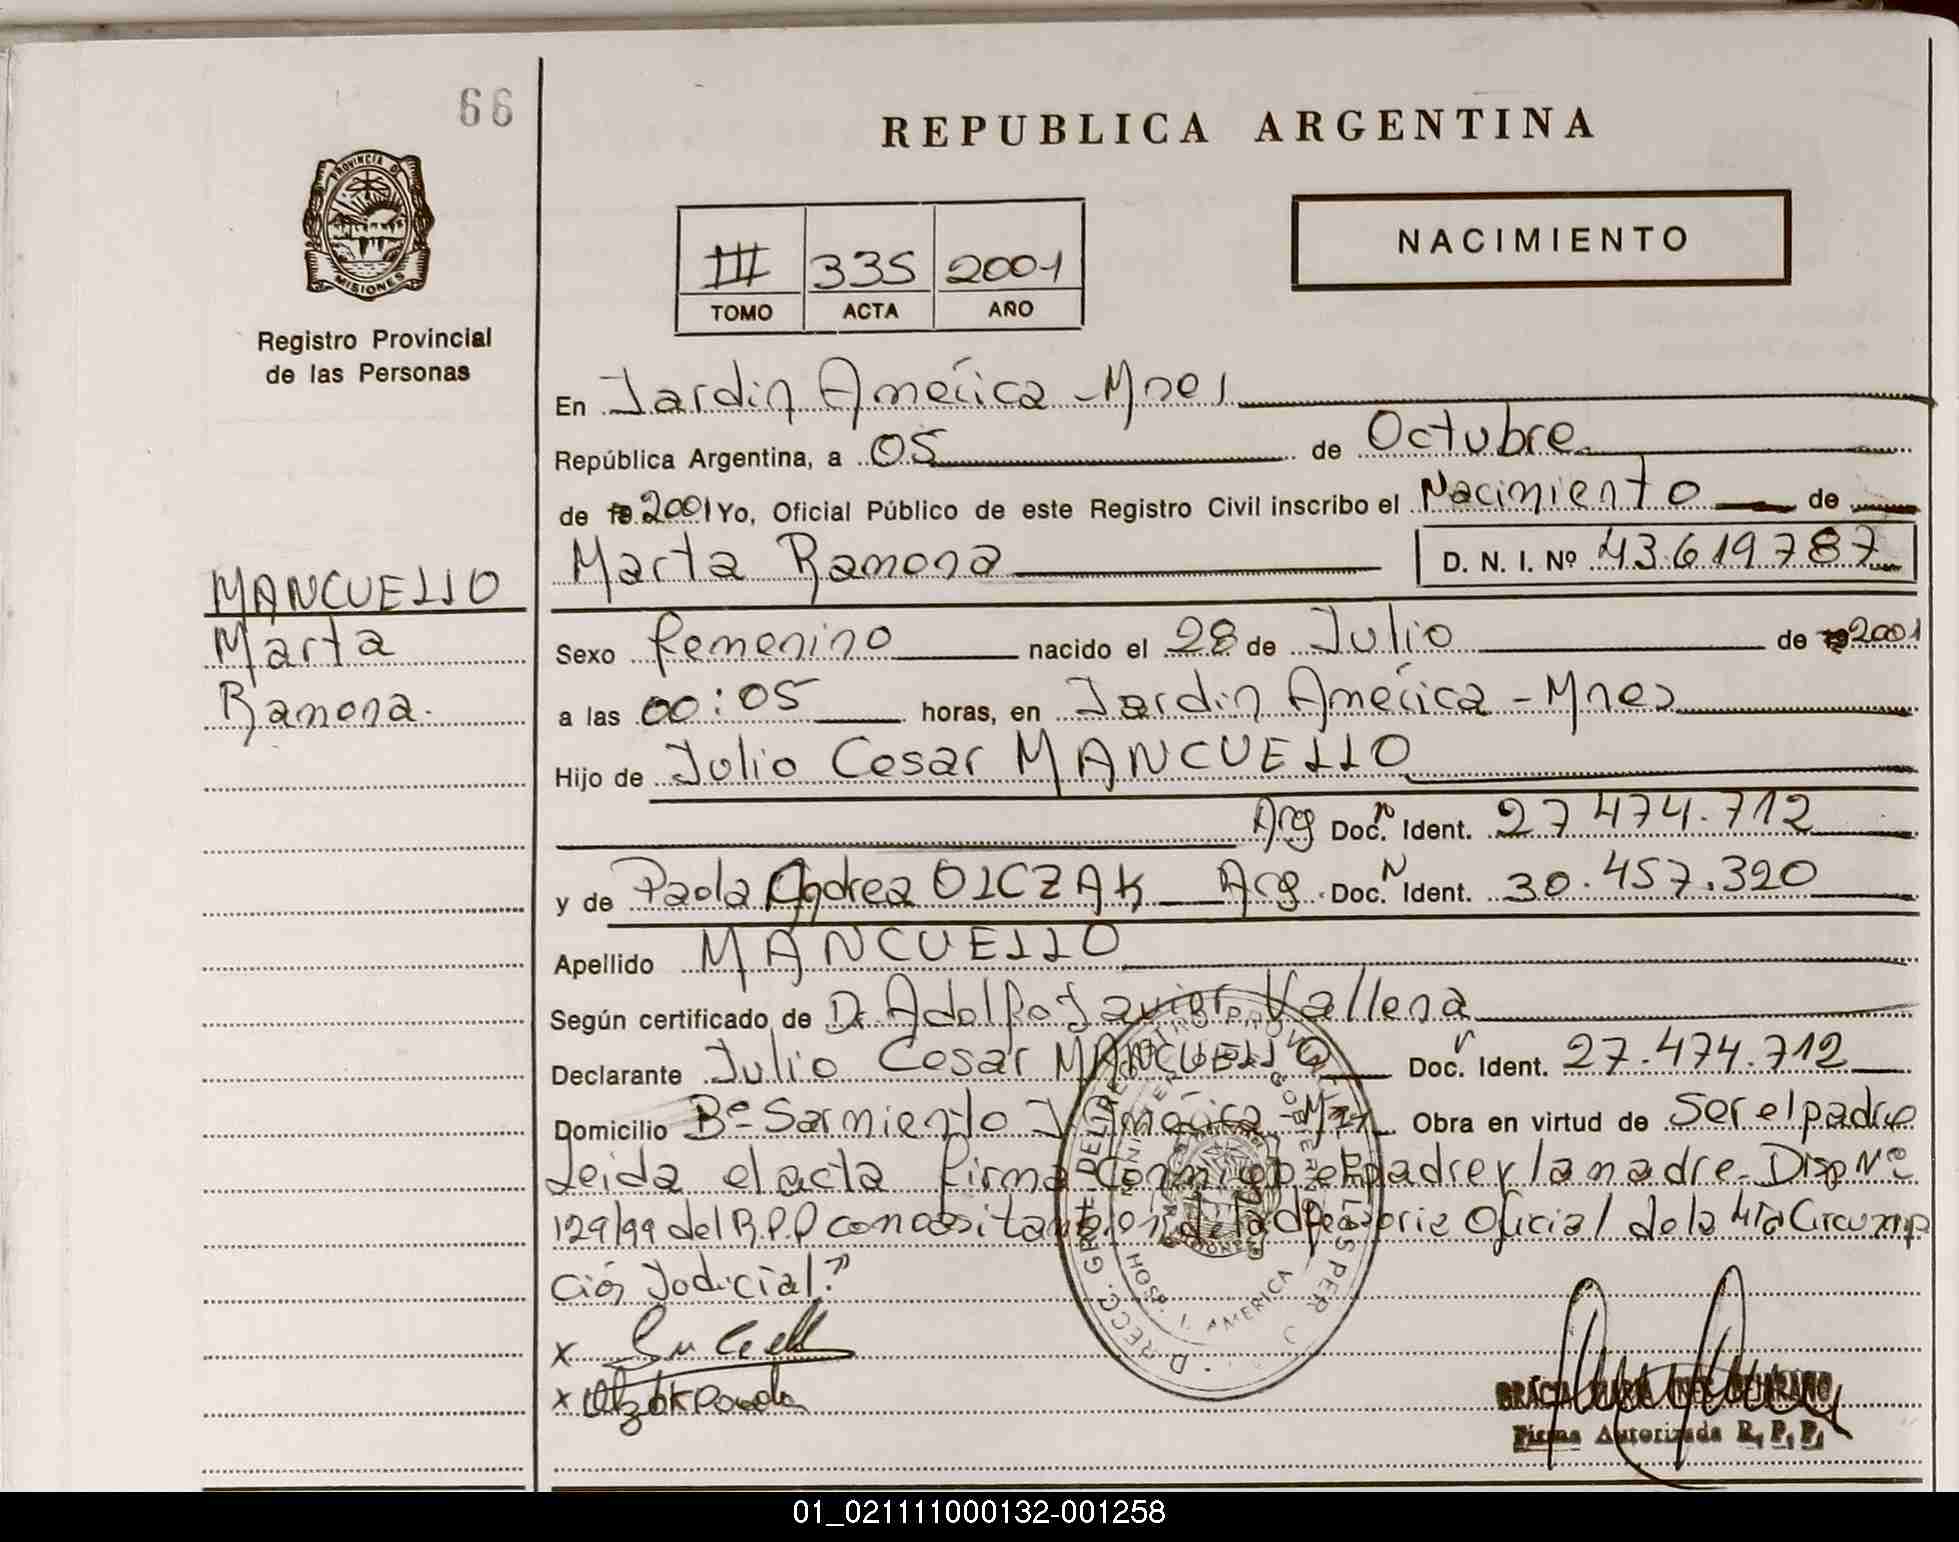 66
REPUBLICA ARGENTINA
PROVINCIA D
MISIONES
NACIMIENTO
III 335 2001
TOMO ACTA AÑO
Registro Provincial
de las Personas
En Jardin América - Mnes
República Argentina, a 05 de Octubre
de 2001 Yo, Oficial Público de este Registro Civil inscribo el Nacimiento de
Marta Ramona D. N. I. Nº 43.619.787
MANCUELLO
Marta
Ramona.
Sexo femenino nacido el 28 de Julio de 2001
a las 00:05 horas, en Jardin América - Mnes
Hijo de Julio Cesar MANCUELLO
Arg Doc. N Ident. 27 474.712
y de Paola Andrea OLCZAK Arg. Doc. N Ident. 30.457.320
Apellido MANCUELLO
Según certificado de Dr. Adolfo Javier Vallena
Declarante Julio Cesar MANCUELLO Doc. Ident. 27.474.712
Domicilio Bº Sarmiento J. América - Obra en virtud de Ser el padre
Leida el acta firma Conmigo el padre y la madre - Disp Nº
129/99 del R.P.P con de la Oficial de la 4ta Circunscrip
ción Judicial."
x
x Olczak Paola
HOSP. J. AMERICA
Firma Autorizada R. P. P.
01_021111000132-001258